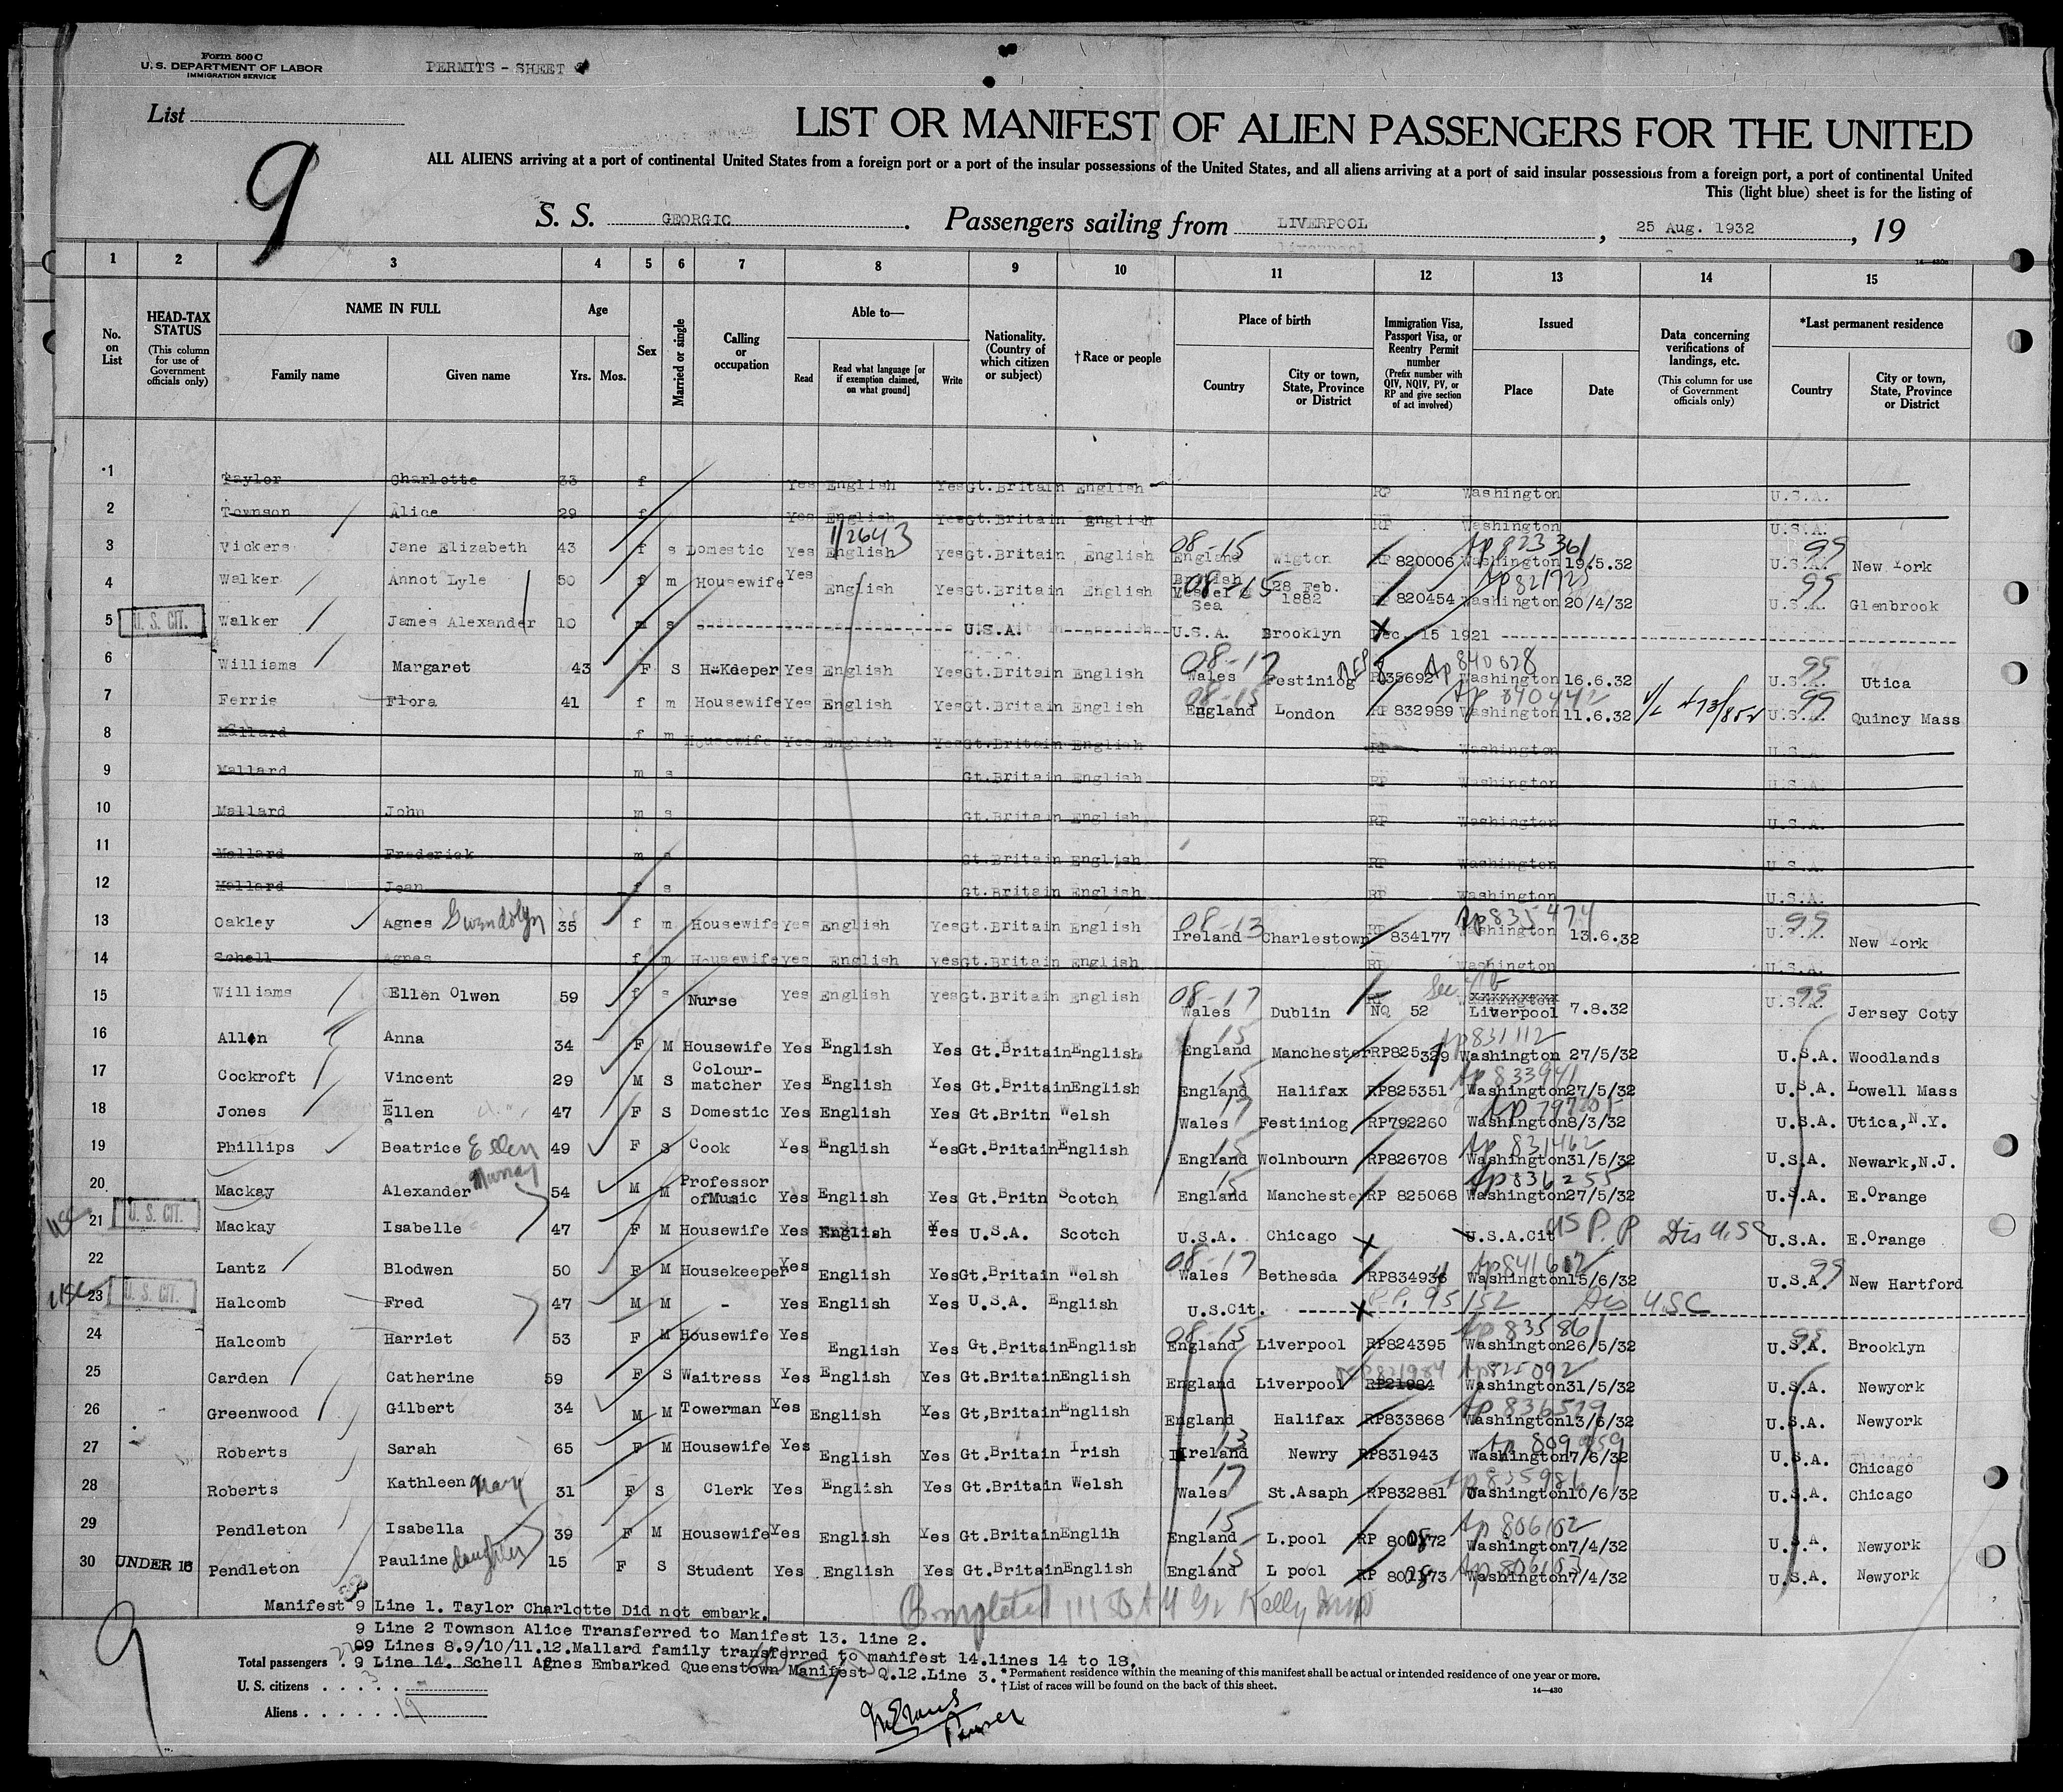 Form 500 C
U. S. DEPARTMENT OF LABOR
IMMIGRATION SERVICE
PERMITS - SHEET
List
9
LIST OR MANIFEST OF ALIEN PASSENGERS FOR THE UNITED
ALL ALIENS arriving at a port of continental United States from a foreign port or a port of the insular possessions of the United States, and all aliens arriving at a port of said insular possessions from a foreign port, a port of continental United
This (light blue) sheet is for the listing of
S. S. GEORGIC. Passengers sailing from LIVERPOOL, 25 Aug. 1932, 19
1 2 3 4 5 6 7 8 9 10 11 12 13 14 15
No. on List
HEAD-TAX STATUS (This column for use of Government officials only)
NAME IN FULL Family name Given name
Age Yrs. Mos.
Sex
Married or single
Calling or occupation
Able to— Read Read what language [or if exemption claimed, on what ground] Write
Nationality. (Country of which citizen or subject)
†Race or people
Place of birth Country City or town, State, Province or District
Immigration Visa, Passport Visa, or Reentry Permit number (Prefix number with QIV, NQIV, PV, or RP and give section of act involved)
Issued Place Date
Data concerning verifications of landings, etc. (This column for use of Government officials only)
*Last permanent residence Country City or town, State, Province or District
1 Taylor Charlotte 33 f Yes English Yes Gt.Britain English RP Washington U.S.A.
2 Townson Alice 29 f Yes English Yes Gt.Britain English RP Washington U.S.A.
1/2643
3 Vickers Jane Elizabeth 43 f s Domestic Yes English Yes Gt.Britain English 08-15 England Wigton RP 820006 Ap 823361 Washington 19.5.32 99 U.S.A. New York
4 Walker Annot Lyle 50 f m Housewife Yes English Yes Gt.Britain English 08-15 British Vessel Sea 28 Feb. 1882 RP 820454 Washington 20/4/32 99 U.S.A. Glenbrook
5 U. S. CIT. Walker James Alexander 10 m s U.S.A. U.S.A. Brooklyn Dec. 15 1921
6 Williams Margaret 43 F S H-Keeper Yes English Yes Gt.Britain English 08-17 Wales Festiniog Ap 840628 Washington 16.6.32 99 U.S.A. Utica
7 Ferris Flora 41 f m Housewife Yes English Yes Gt.Britain English 08-15 England London RP 832989 Ap 840442 Washington 11.6.32 99 U.S.A. Quincy Mass
8 Mallard f m Housewife Yes English Yes Gt.Britain English RP Washington U.S.
9 Mallard m s Gt.Britain English RP Washington U.S.A.
10 Mallard John m s Gt.Britain English RP Washington U.S.A.
11 Mallard Frederick m s Gt.Britain English RP Washington U.S.A.
12 Mallard Jean f s Gt.Britain English RP Washington U.S.A.
13 Oakley Agnes Gwendolyn 35 f m Housewife Yes English Yes Gt.Britain English 08-13 Ireland Charlestown RP 834177 Ap 835474 Washington 13.6.32 99 U.S.A. New York
14 Schell Agnes f m Housewife Yes English Yes Gt.Britain English RP Washington U.S.A.
15 Williams Ellen Olwen 59 f s Nurse Yes English Yes Gt.Britain English 08-17 Wales Dublin NQ 52 Liverpool 7.8.32 99 U.S.A. Jersey Coty
16 Allen Anna 34 F M Housewife Yes English Yes Gt.Britain English 15 England Manchester RP825329 Ap 831112 Washington 27/5/32 U.S.A. Woodlands
17 Cockroft Vincent 29 M S Colour-matcher Yes English Yes Gt.Britain English 15 England Halifax RP825351 Ap 833941 Washington 27/5/32 U.S.A. Lowell Mass
18 Jones Ellen 47 F S Domestic Yes English Yes Gt.Britn Welsh 17 Wales Festiniog RP792260 Washington 8/3/32 U.S.A. Utica,N.Y.
19 Phillips Beatrice Ellen 49 F S Cook Yes English Yes Gt.Britain English 15 England Wolnbourn RP826708 Ap 831462 Washington 31/5/32 U.S.A. Newark,N.J.
20 Mackay Alexander Murray 54 M M Professor of Music Yes English Yes Gt.Britn Scotch 15 England Manchester RP 825068 Ap 836255 Washington 27/5/32 U.S.A. E.Orange
21 USC U. S. CIT. Mackay Isabelle 47 F M Housewife Yes English Yes U.S.A. Scotch U.S.A. Chicago U.S.A.Cit US P.P. Dis USC U.S.A. E.Orange
22 Lantz Blodwen 50 F M Housekeeper Yes English Yes Gt.Britain Welsh 08-17 Wales Bethesda Washington 15/6/32 99 U.S.A. New Hartford
23 USC U. S. CIT. Halcomb Fred 47 M M - Yes English Yes U.S.A. English U.S.Cit. P.P. 95152 Dis USC
24 Halcomb Harriet 53 F M Housewife Yes English Yes Gt.Britain English 08-15 England Liverpool RP824395 Ap 835861 Washington 26/5/32 99 U.S.A. Brooklyn
25 Carden Catherine 59 F S Waitress Yes English Yes Gt.Britain English England Liverpool RP21984 Ap 825092 Washington 31/5/32 U.S.A. Newyork
26 Greenwood Gilbert 34 M M Towerman Yes English Yes Gt,Britain English England Halifax RP833868 Ap 836529 Washington 13/6/32 U.S.A. Newyork
27 Roberts Sarah 65 F M Housewife Yes English Yes Gt.Britain Irish 13 Ireland Newry RP831943 Washington 7/6/32 U.S.A. Chicago
28 Roberts Kathleen Mary 31 F S Clerk Yes English Yes Gt.Britain Welsh 17 Wales St.Asaph RP832881 Ap 835986 Washington 10/6/32 U.S.A. Chicago
29 Pendleton Isabella 39 F M Housewife Yes English Yes Gt.Britain Englih 15 England L.pool RP Ap 806102 Washington 7/4/32 U.S.A Newyork
30 UNDER 16 Pendleton Pauline daughter 15 F S Student Yes English Yes Gt.Britain English 15 England L pool RP Ap 806103 Washington 7/4/32 U.S.A. Newyork
Manifest 9 Line 1. Taylor Charlotte Did not embark.
Completed
9 Line 2 Townson Alice Transferred to Manifest 13. line 2.
9 Lines 8.9/10/11.12.Mallard family transferred to manifest 14.lines 14 to 18.
9 Line 14. Schell Agnes Embarked Queenstown Manifest Q.12.Line 3.
9
Total passengers
U. S. citizens 3
Aliens 19
*Permanent residence within the meaning of this manifest shall be actual or intended residence of one year or more.
† List of races will be found on the back of this sheet.
14—430
Purser